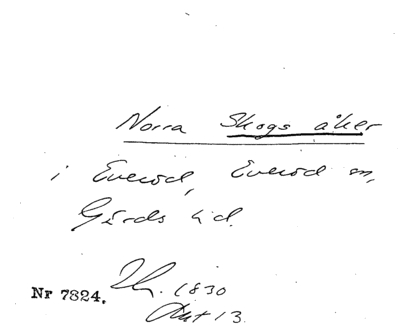 Norra Skogs åker
i Everöd, Everöd sn,
Gärds hd.
Nr 7824. Lh. 1830
Akt 13.